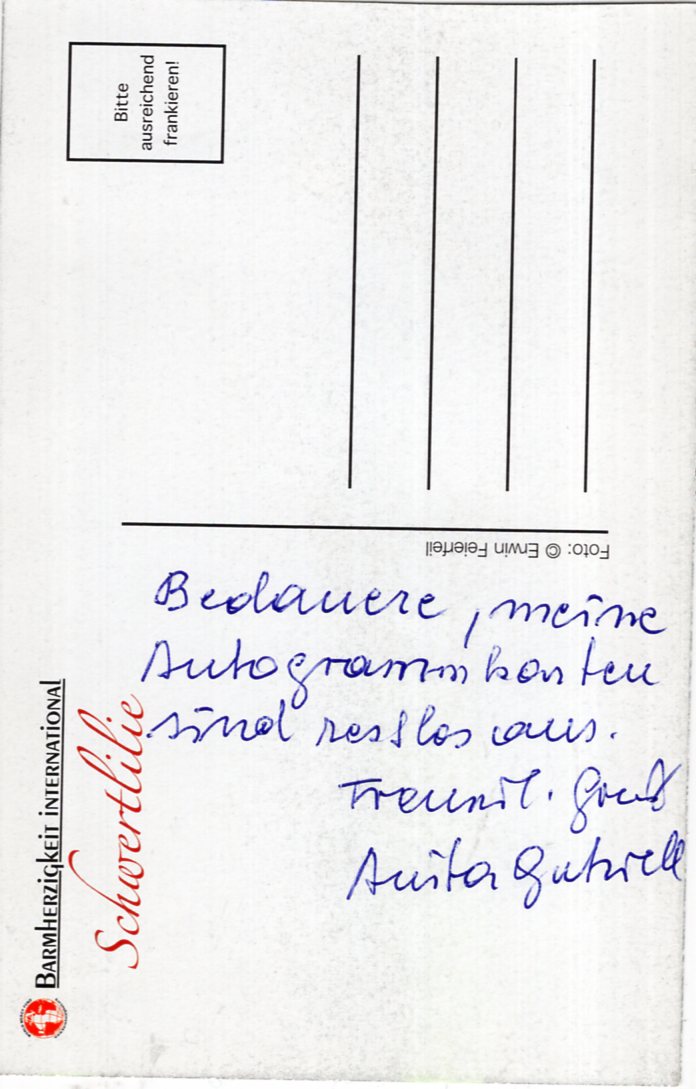 Bitte
ausreichend
frankieren!
Foto: © Erwin Feierfeil
Bedauere, meine
Autogrammkarten
sind restlos aus.
Freundl. Gruß
Anita Gutwell
BARMHERZIGKEIT INTERNATIONAL
Schwertlilie